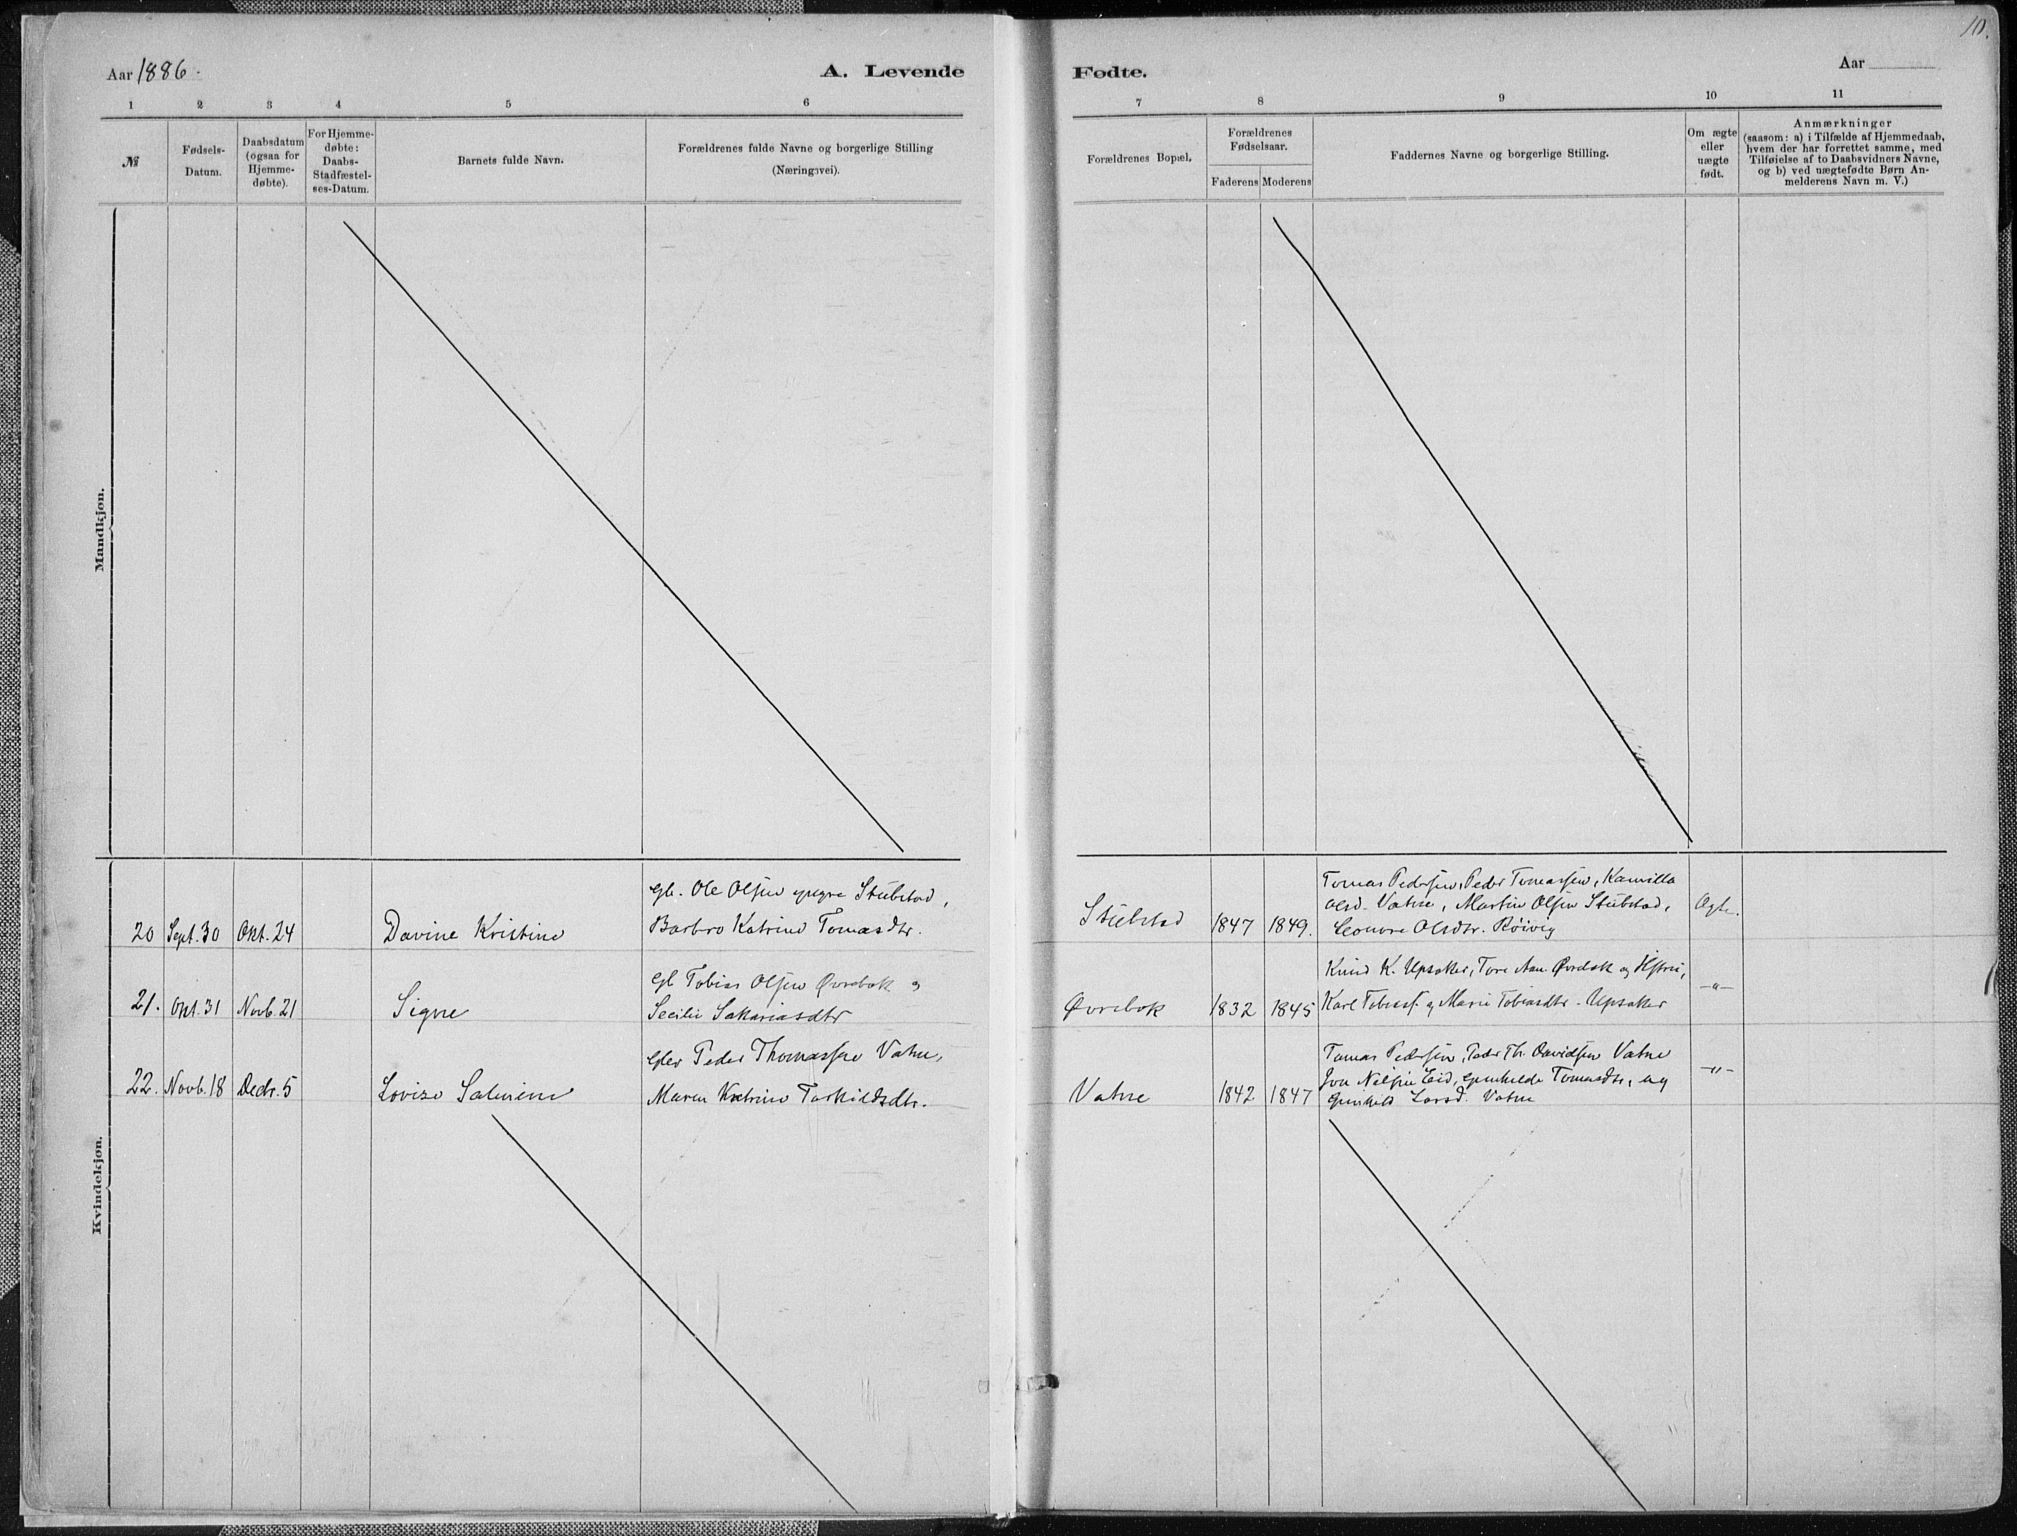 10.
Aar 1886.
A. Levende
Fødte.
Aar
1 2 3 4 5 6
7 8 9 10 11
№
Fødsels-
Datum.
Daabsdatum
(ogsaa for
Hjemme-
døbte).
For Hjemme-
døbte:
Daabs-
Stadfæstel-
ses-Datum.
Barnets fulde Navn.
Forældrenes fulde Navne og borgerlige Stilling
(Næringsvei).
Forældrenes Bopæl.
Forældrenes
Fødselsaar.
Faderens Moderens
Faddernes Navne og borgerlige Stilling.
Om ægte
eller
uægte
født.
Anmærkninger
(saasom: a) i Tilfælde af Hjemmedaab,
hvem der har forrettet samme, med
Tilføielse af to Daabsvidners Navne,
og b) ved uægtefødte Børn An-
melderens Navn m. V.)
Mandkjøn.
Kvindekjøn.
20 Sept. 30 Okt. 24 Davine Kristine
Ole Olsen yngre Stubstad,
Barbro Katrine Tomasdtr.
Stubstad 1847 1849.
Tomas Pedersen, Peder Tomassen, Kamilla
Olsd. Vatne, Martin Olsen Stubstad,
Olsdtr. Røivig
Ægte.
21. Okt. 31 Novb. 21 Signe
Gb Tobias Olsen Øvrebøk og
Secilie Sakariasdtr
Øvrebøk 1832 1845
Knud K. Upsaker, Tore Aan. Øvrebøk og Hstru,
Karl Tobiass. og Marie Tobiasdtr. Upsaker
-"-
22. Novb. 18 Decbr. 5 Lovise Saline
Peder Thomassen Vatne,
Maren Katrine Torkildsdtr.
Vatne 1842 1847
Tomas Pedersen, Peder Th. Davidsen Vatne
Jon Nilsen Eid, Gunhilde Tomasdtr, og
Gunhild Larsd. Vatne
-"-